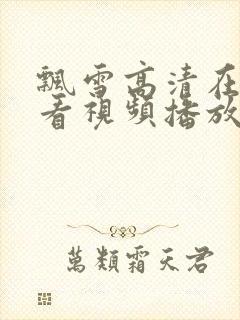 飄雪高清在
看視頻播放
萬類霜天君